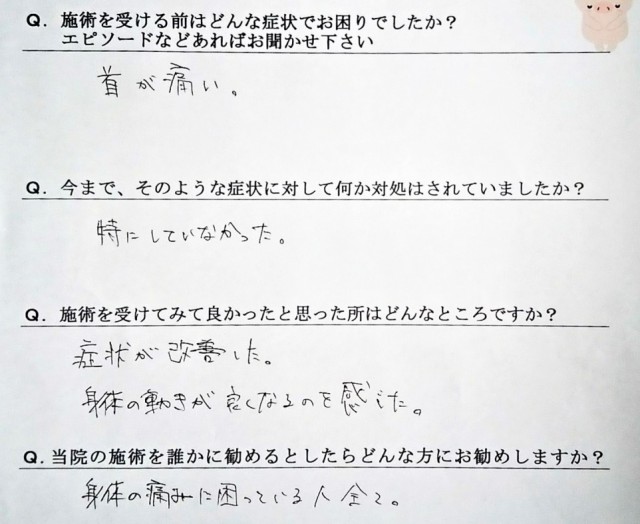 Q. 施術を受ける前はどんな症状でお困りでしたか？
エピソードなどあればお聞かせ下さい
首が痛い。
Q. 今まで、そのような症状に対して何か対処はされていましたか？
特にしていなかった。
Q. 施術を受けてみて良かったと思った所はどんなところですか？
症状が改善した。
身体の動きが良くなるのを感じた。
Q. 当院の施術を誰かに勧めるとしたらどんな方にお勧めしますか？
身体の痛みに困っている人全て。